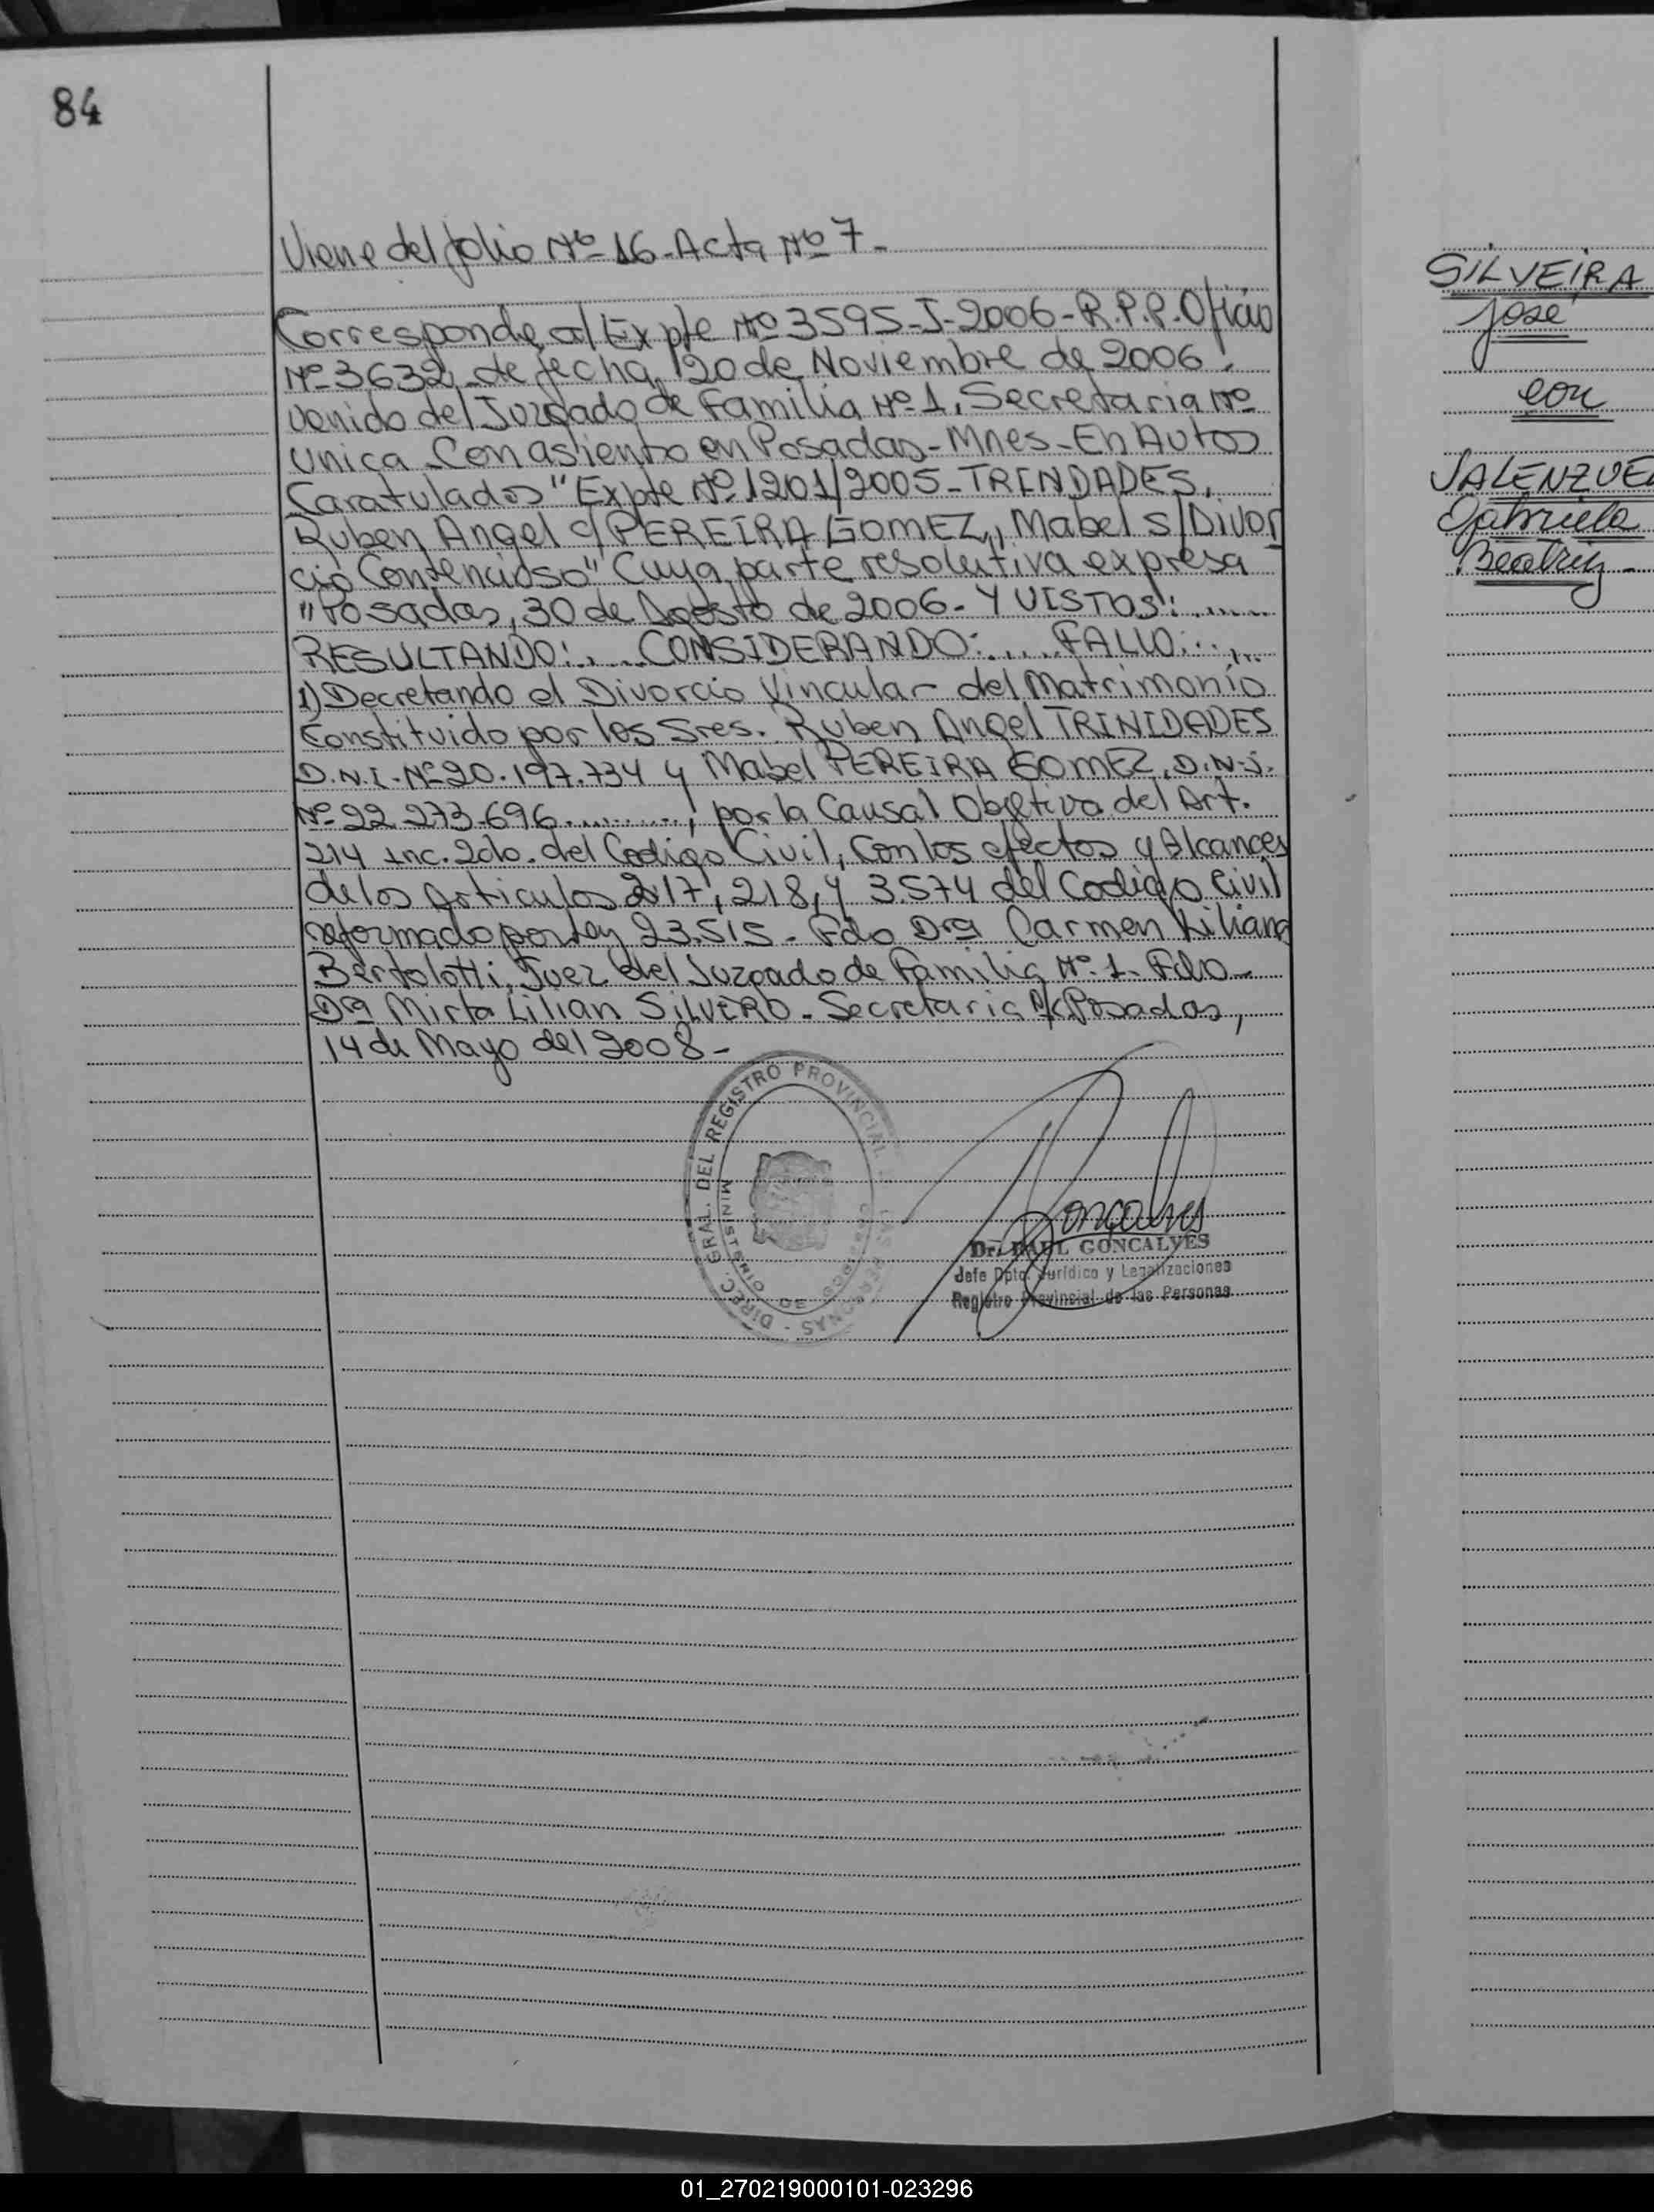 84
Viene del folio Nº 16-Acta Nº 7-
Corresponde al Expte Nº 3595-J-2006-R.P.P. Oficio
Nº 3632, de fecha, 20 de Noviembre de 2006,
venido del Juzgado de Familia Nº 1, Secretaria Nº
Unica Con asiento en Posadas-Mnes-En Autos
Caratulados "Expte Nº 1201/2005-TRINDADES,
Ruben Angel c/ PEREIRA GOMEZ, Mabel s/Divor
cio Contencioso" Cuya parte resolutiva expresa
"Posadas, 30 de Agosto de 2006- Y VISTOS: ......
RESULTANDO: .... CONSIDERANDO: ..... FALLO: ....
1) Decretando el Divorcio Vincular del Matrimonio
Constituido por los Sres. Ruben Angel TRINIDADES
D.N.I.-Nº 20.197.734 y Mabel PEREIRA GOMEZ, D.N.I.
Nº 22 273-696.........., por la Causal Objetiva del Art.
214 Inc. 2do. del Codigo Civil, Con los efectos y Alcances
de los Articulos 217, 218, y 3.574 del Codigo Civil
reformado por Ley 23.515- Fdo Dra Carmen Liliana
Bertolotti, Juez del Juzgado de Familia Nº 1- Fdo-
Dra Mirta Lilian SILVERO- Secretaria A/C Posadas,
14 de Mayo del 2008-
DIREC. GRAL. DEL REGISTRO PROVINCIAL DE LAS PERSONAS -
MINISTERIO DE GOBIERNO
Goncalves
Dr. RAUL GONCALVES
Jefe Dpto. Jurídico y Legalizaciones
Registro Provincial de las Personas
SILVEIRA
José
con
VALENZUE
Gabriela
Beatriz-
01_270219000101-023296